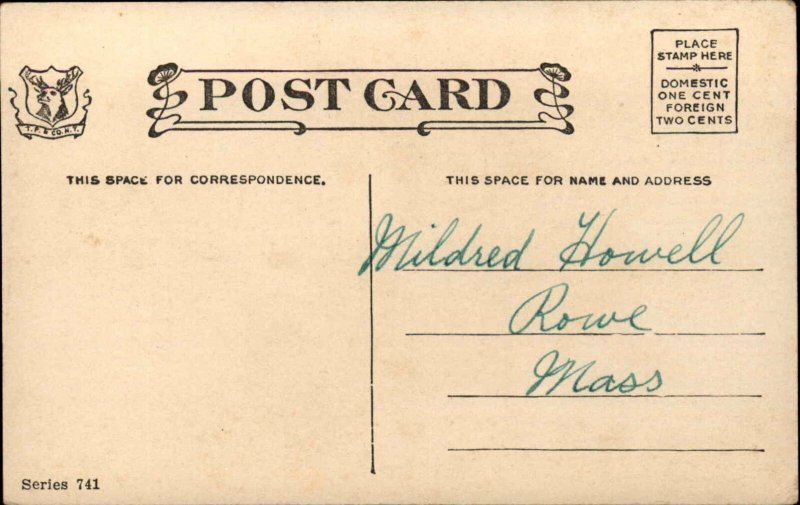 PLACE
STAMP HERE
DOMESTIC
ONE CENT
FOREIGN
TWO CENTS
POST CARD
T. P. & CO. N.Y.
THIS SPACE FOR CORRESPONDENCE.
THIS SPACE FOR NAME AND ADDRESS
Mildred Howell
Rowe
Mass
Series 741